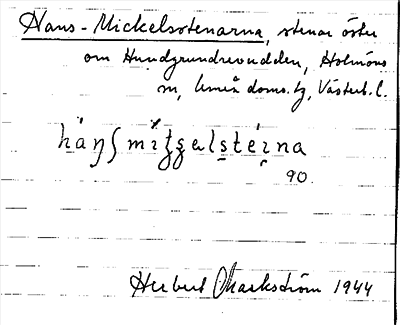 Hans-Mickelsstenarna, stenar öster
om Hundgrundsrevudden, Holmöns
sn, Umeå doms.tg, Västerb. l.
90.
Herbert Markström 1944